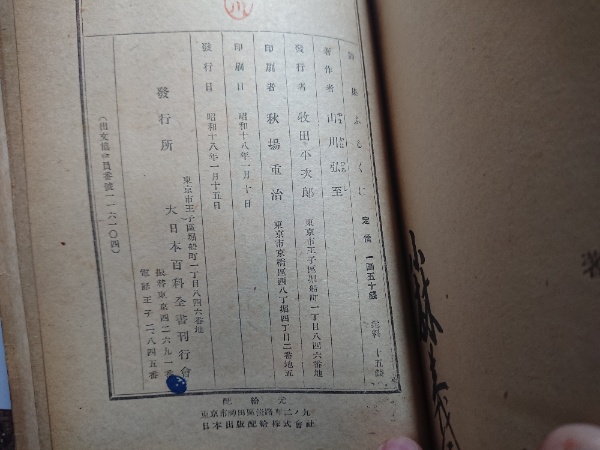 詩集 ふるくに 定價 一圓五十錢 送料 十五錢
著作者 山川弘至
發行者 牧田小次郎 東京市王子區堀船町一丁目八四六番地
印刷者 秋場重治 東京市京橋區西八丁堀四丁目二番地五
印刷日 昭和十八年一月十日
發行日 昭和十八年一月十五日
發行所 東京市王子區堀船町一丁目八四六番地
大日本百科全書刊行會
振替東京四二六九一番
電話王子二、八四五番
(出文協會員番號一一六一〇四)
配給元
東京市神田區淡路町二ノ九
日本出版配給株式會社
小林